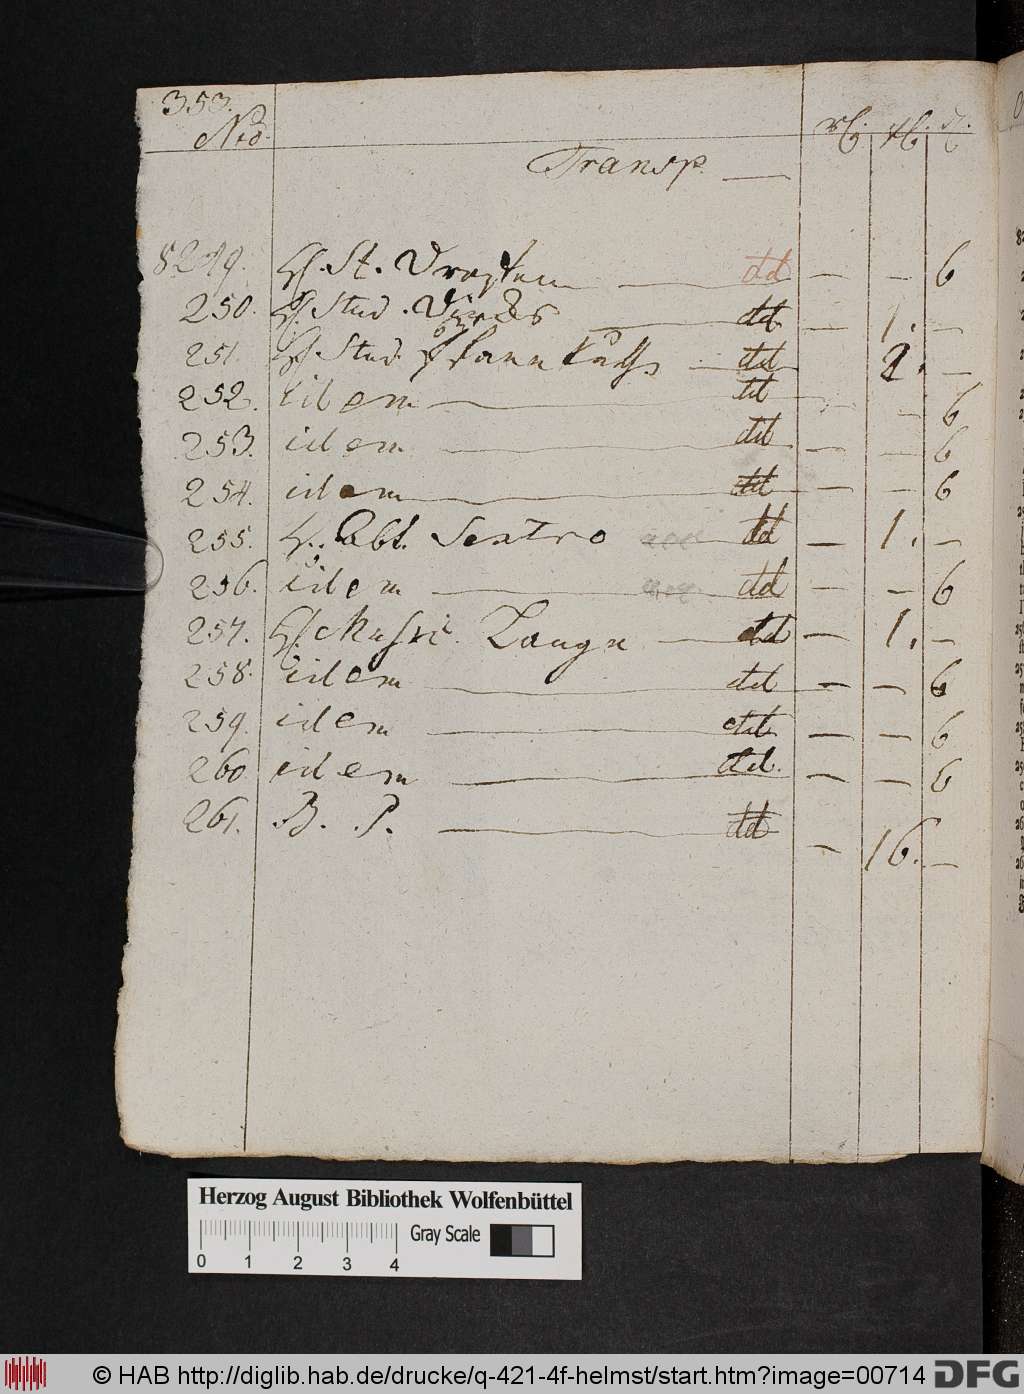 353.
Nro.
Transp. —
8249. H. St. dd — — 6
250. H. Stud. dd — 1. —
251. H. Stud. dd — 2. —
252. idem — dd — — 6
253. idem — dd — — 6
254. idem — dd — — 6
255. H. Abt. Sextro dd — 1. —
256. idem — dd — — 6
257. H. Lange — dd — 1. —
258. idem — dd — — 6
259. idem — dd — — 6
260 idem — dd. — — 6
261. B. P. — dd — 16. —
Herzog August Bibliothek Wolfenbüttel
Gray Scale
0 1 2 3 4
© HAB http://diglib.hab.de/drucke/q-421-4f-helmst/start.htm?image=00714 DFG